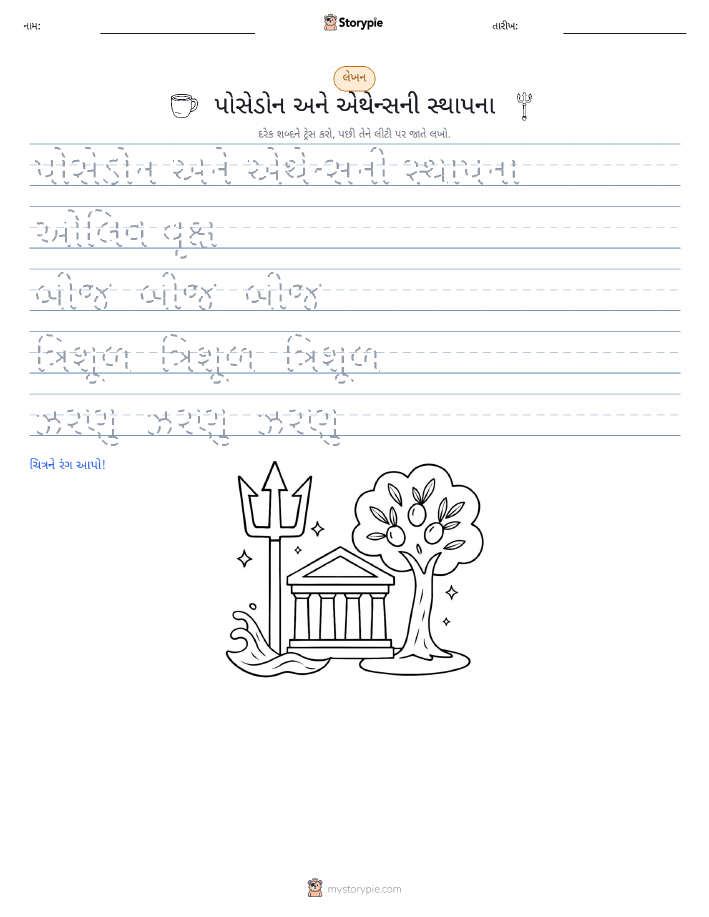 નામ:
Storypie
તારીખ:
લેખન
પોસેડોન અને એથેન્સની સ્થાપના
દરેક શબ્દને ટ્રેસ કરો, પછી તેને લીટી પર જાતે લખો.
પોસેડોન અને એથેન્સની સ્થાપના
ઓલિવ વૃક્ષ
બીજ બીજ બીજ
ત્રિશૂળ ત્રિશૂળ ત્રિશૂળ
ઝરણુ ઝરણુ ઝરણુ
ચિત્રને રંગ આપો!
mystorypie.com